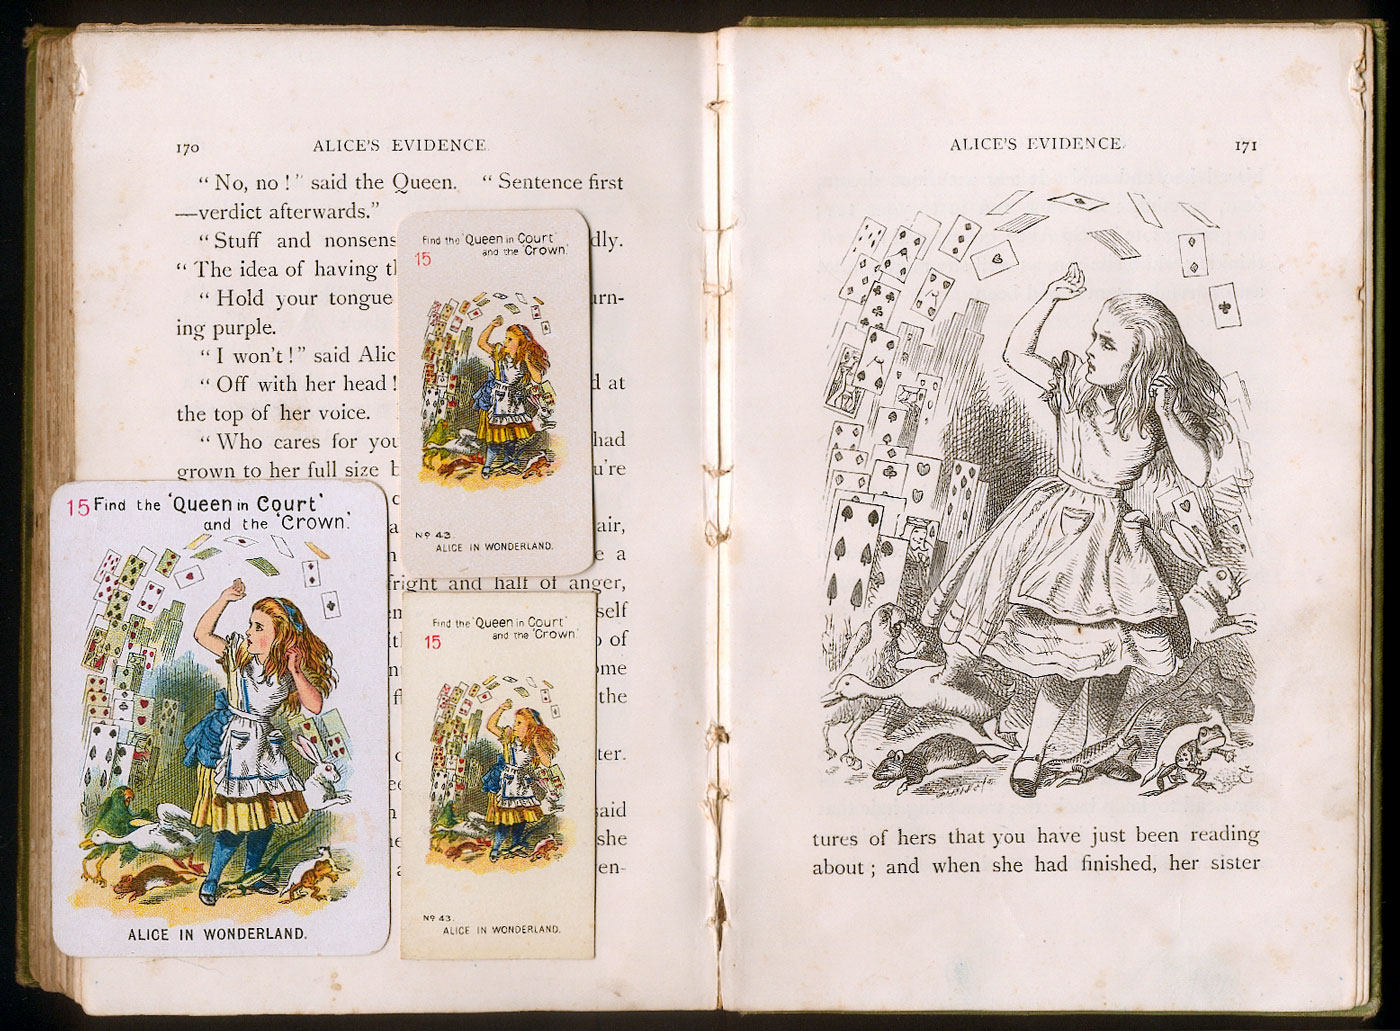 170 ALICE'S EVIDENCE
“ No, no ! ” said the Queen. “ Sentence first
—verdict afterwards.”
“ Stuff and nonsens dly.
“ The idea of having th
“ Hold your tongue urn-
ing purple.
“ I won't ! ” said Alic
“ Off with her head ! d at
the top of her voice.
“ Who cares for you had
grown to her full size b u're
air,
e a
fright and half of anger,
self
of
ome
the
ter.
said
she
en-
Find the 'Queen in Court'
15 and the 'Crown.'
Nº 43
ALICE IN WONDERLAND.
15 Find the 'Queen in Court'
and the 'Crown.'
ALICE IN WONDERLAND.
Find the 'Queen in Court'
15 and the 'Crown.'
Nº 43.
ALICE IN WONDERLAND.
ALICE'S EVIDENCE. 171
tures of hers that you have just been reading
about ; and when she had finished, her sister